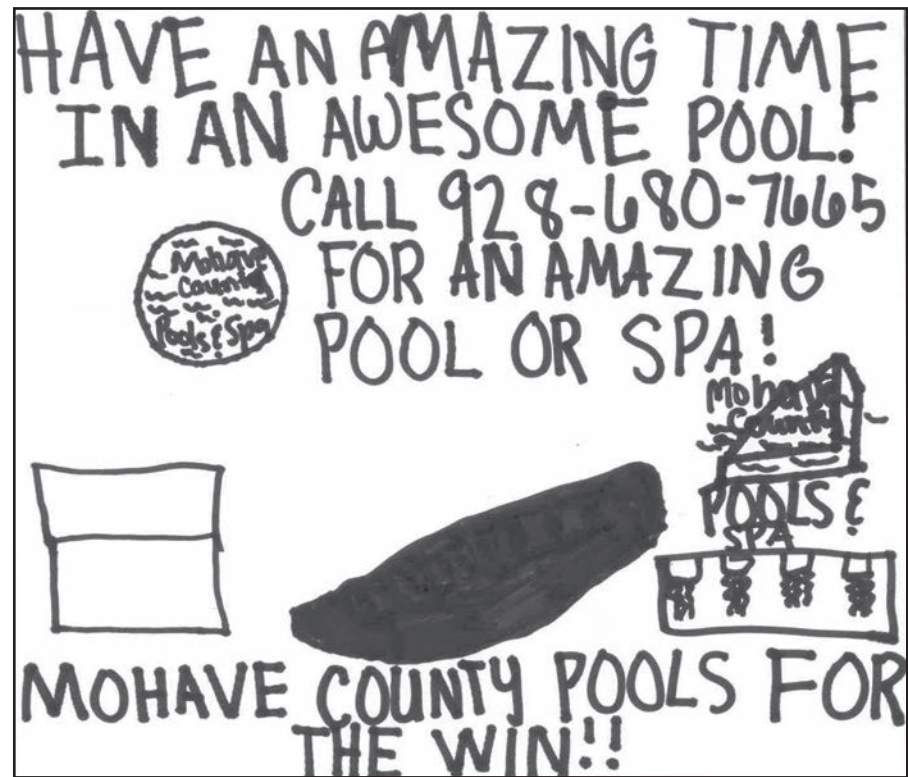 HAVE AN AMAZING TIME
IN AN AWESOME POOL!
CALL 928-680-7665
FOR AN AMAZING
POOL OR SPA!
Mohave
County
Pools & Spa
Mohave
County
POOLS &
SPA
MOHAVE COUNTY POOLS FOR
THE WIN!!